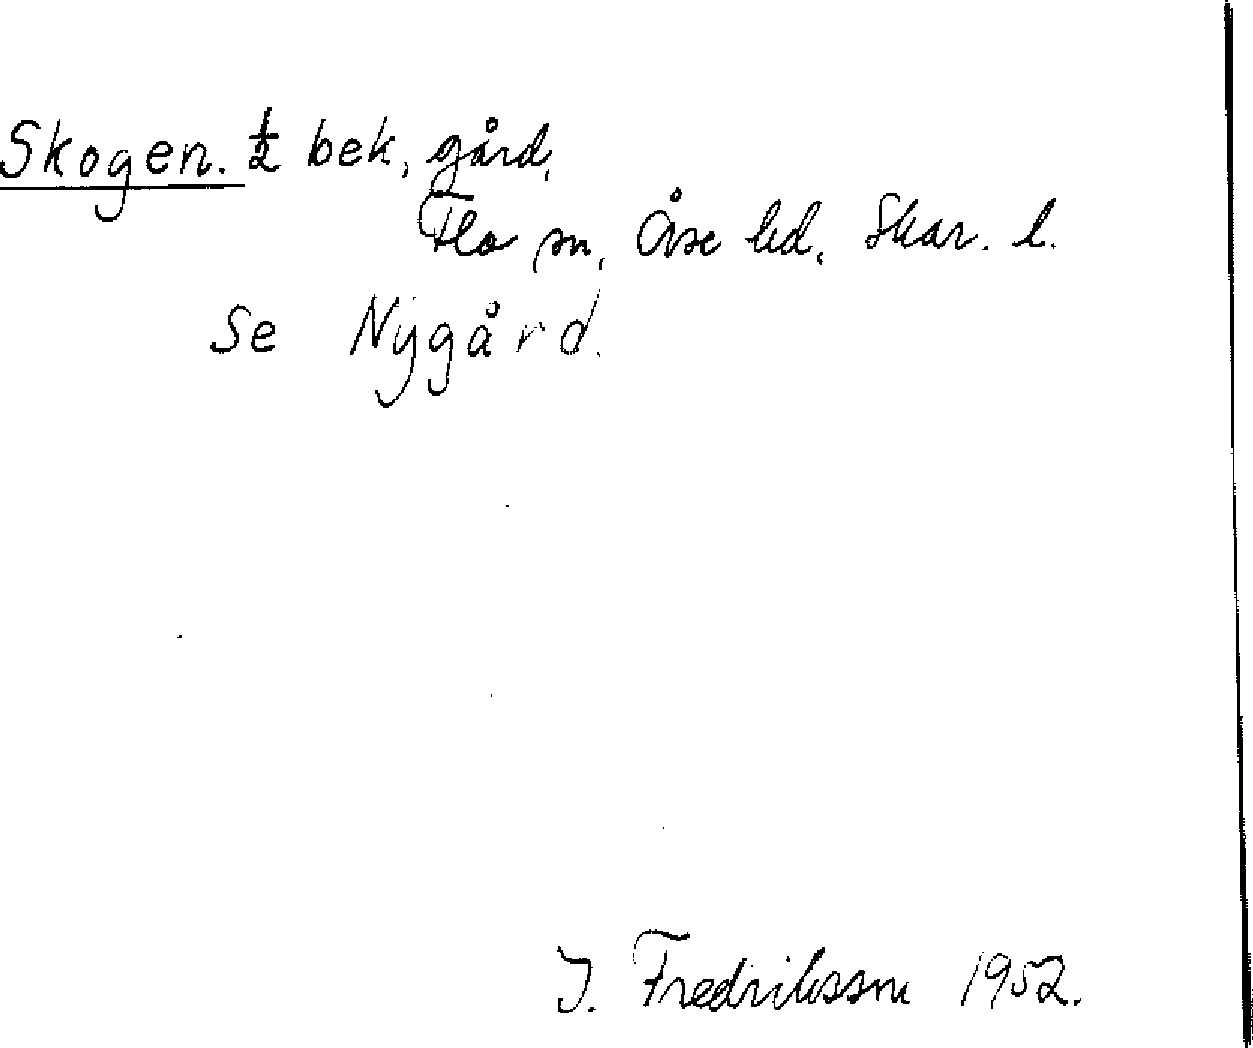 Skogen. 1/2 bek, gård,
Flo sn, Åse hd, Skar. l.
Se Nygård.
J. Fredriksson 1952.